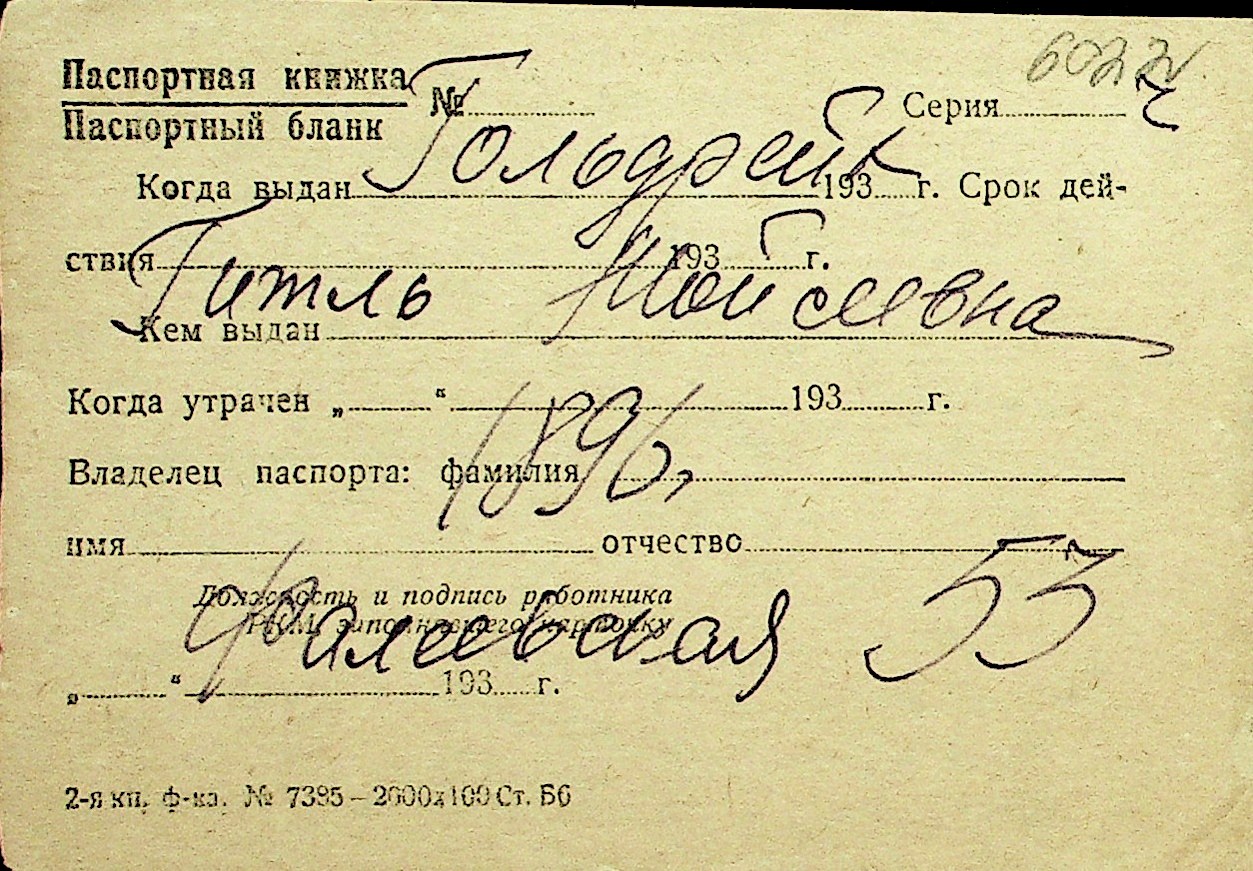 6022
Паспортная книжка
Паспортный бланк
№ Серия
Когда выдан 193 г. Срок дей-
Гольдрейч
ствия 193 г.
Гитль Мойсеевна
Кем выдан
Когда утрачен „ “ 193 г.
1896,
Владелец паспорта: фамилия
имя отчество
Должность и подпись работника
РКМ, заполнявшего карточку
Фалеевская 53
„ “ 193 г.
2-я кп. ф-ка. № 7395–2000х100 Ст. Б6